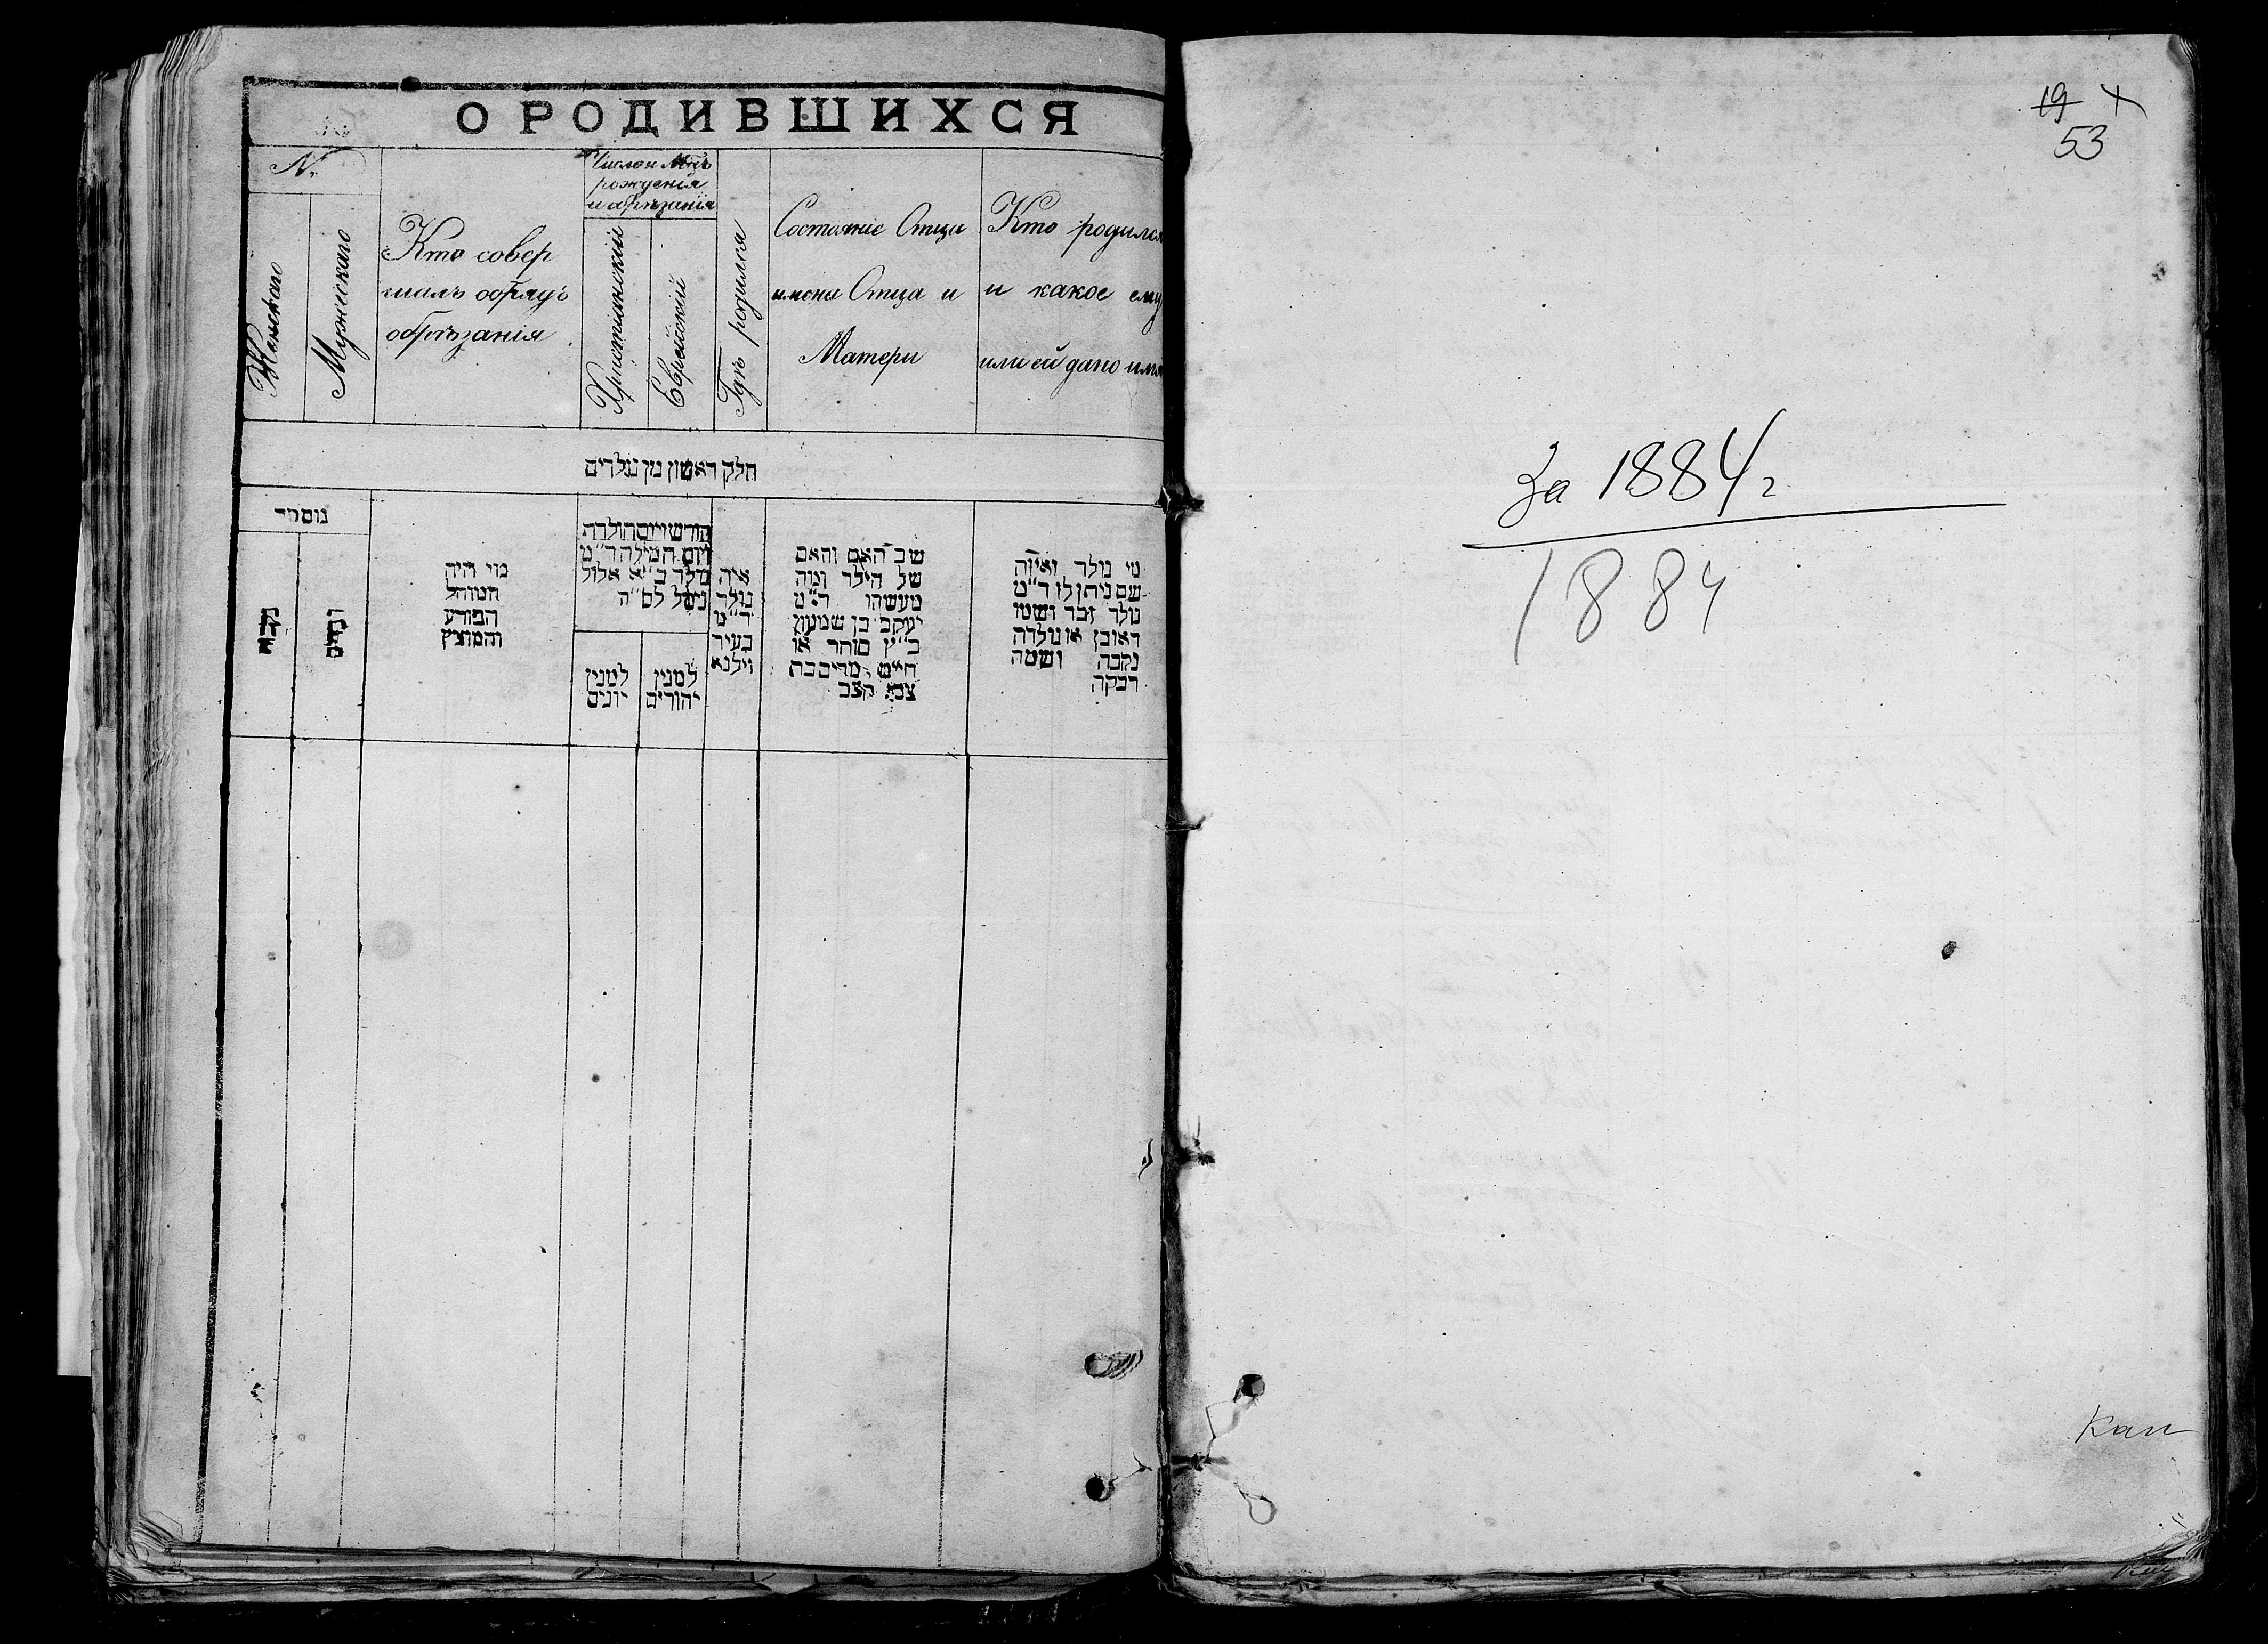 О РОДИВШИХСЯ
№
Женскаго
Мужескаго
Кто совер
шалъ обрядъ
обрѣзанія
Число и Мцъ
рожденія
и обрѣзанія
Христіянскій
Еврейскій
Гдѣ родился
Состояніе Отца
имена Отца и
Матери
Кто родился
и какое ему
или ей дано имя
חלק ראשון מן נולדים
נומער
נקבה
זכרים
מי היה
המוהל
הפורע
והמוצץ
חודש ויום הולדת
ויום המילה ד״מ
נולד ב״א אלול
נימל לס״ה
למנין
יונים
למנין
יהודים
איה
נולד
ד״מ
בעיר
וילנא
שב האם והאם
של הילד ומה
מעשהו ד״מ
יעקב בן שמעון
כ״ץ סוחר או
חיים מרים בת
צבי קצב
מי נולד ואיזה
שם ניתן לו ד״מ
נולד זכר ושמו
ראובן או נולדה
נקבה ושמה
רבקה
19
53
За 1884 г
1884
Кап